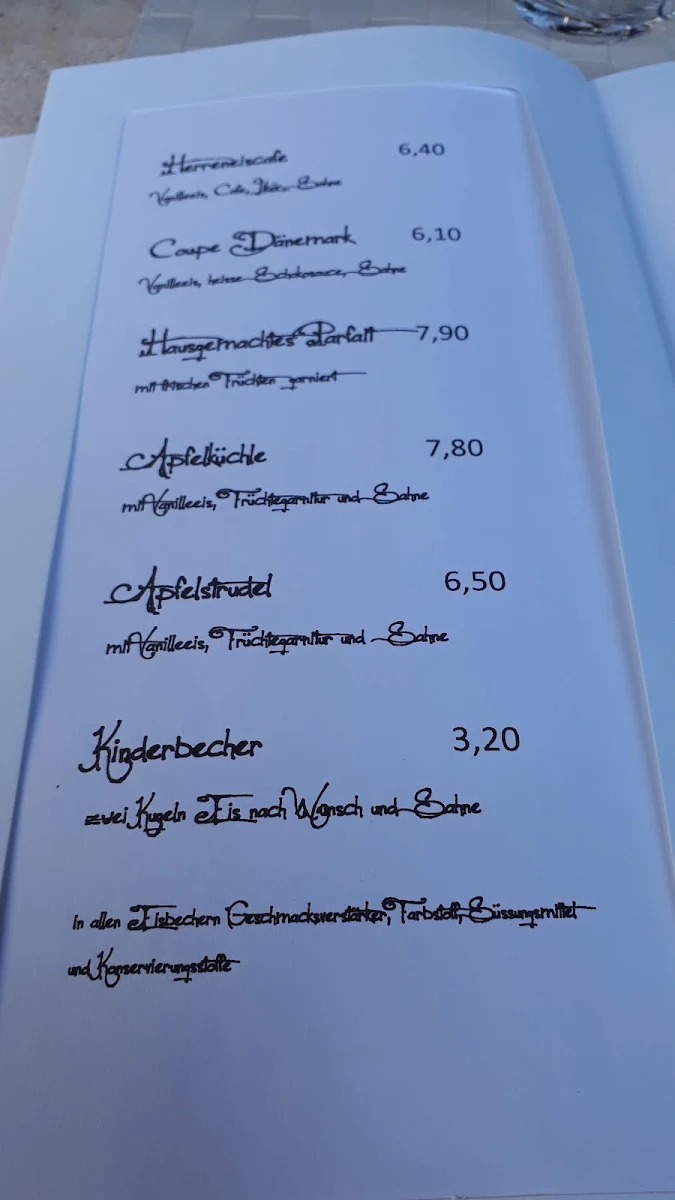 Herreneiscafe 6,40
Vanilleeis, Cafe, Sahne
Coupe Dänemark 6,10
Vanilleeis, heisse Schokosauce, Sahne
Hausgemachtes Parfait 7,90
mit frischen Früchten garniert
Apfelküchle 7,80
mit Vanilleeis, Früchtegarnitur und Sahne
Apfelstrudel 6,50
mit Vanilleeis, Früchtegarnitur und Sahne
Kinderbecher 3,20
zwei Kugeln Eis nach Wunsch und Sahne
in allen Eisbechern Geschmacksverstärker, Farbstoff, Süssungsmittel
und Konservierungsstoffe